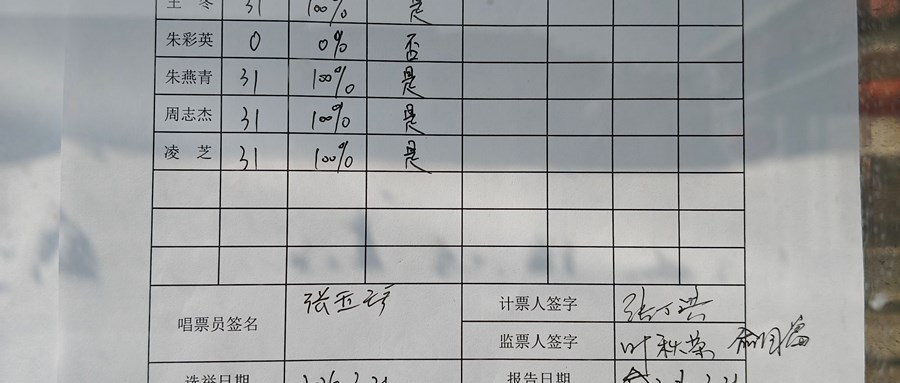 王 冬 31 100% 是
朱彩英 0 0% 否
朱燕青 31 100% 是
周志杰 31 100% 是
凌 芝 31 100% 是
唱票员签名 张亚 计票人签字 张
监票人签字 叶秋荣
选举日期 报告日期